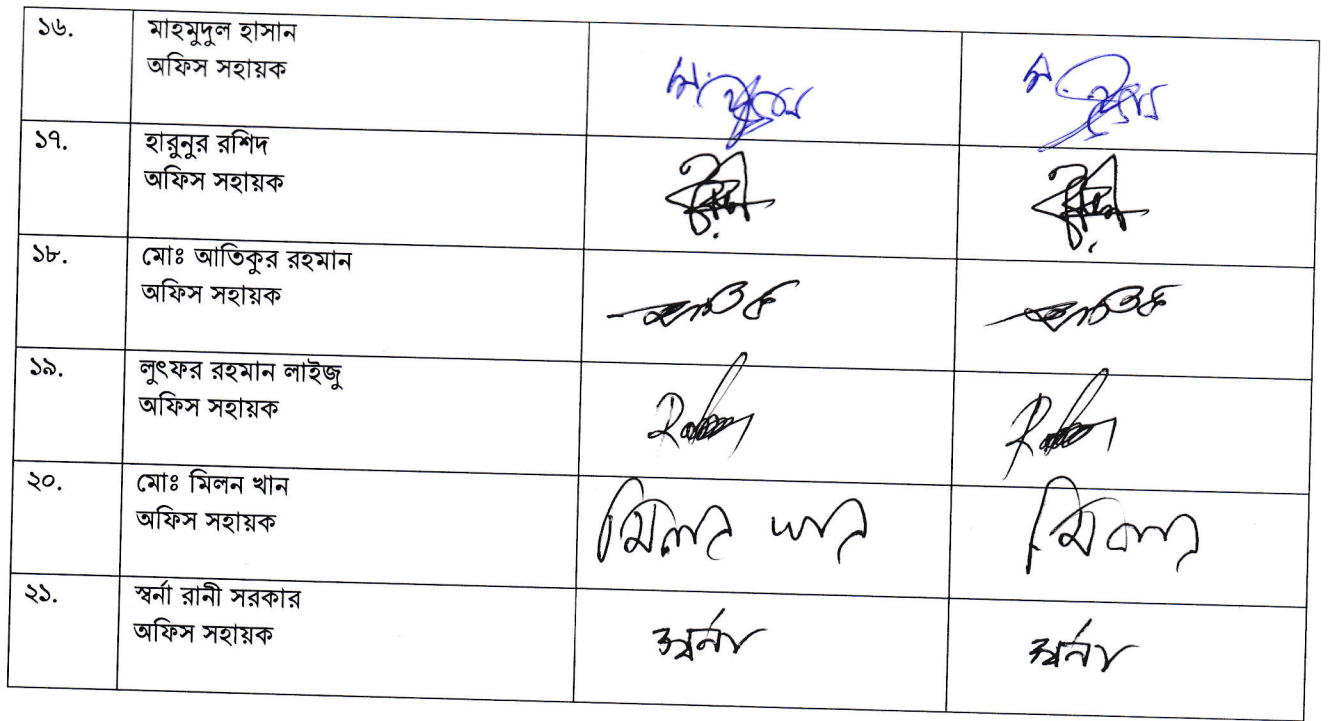 ১৬. মাহমুদুল হাসান
অফিস সহায়ক
১৭. হারুনুর রশিদ
অফিস সহায়ক
১৮. মোঃ আতিকুর রহমান
অফিস সহায়ক
আতিক আতিক
১৯. লুৎফর রহমান লাইজু
অফিস সহায়ক
২০. মোঃ মিলন খান
অফিস সহায়ক
মিলন খান মিলন
২১. স্বর্না রানী সরকার
অফিস সহায়ক
স্বর্না স্বর্না